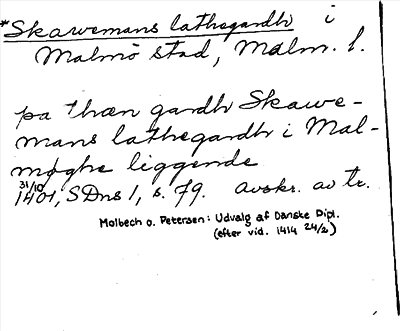 *Skawemans lathegardh i
Malmö stad, Malm. l.
pa thæn gardh Skawe-
mans lathegardh i Mal-
møghe liggende
31/10 1401, SDns 1, s. 79. Avskr. av tr.
Molbech o. Petersen: Udvalg af Danske Dipl.
(efter vid. 1414 24/2)